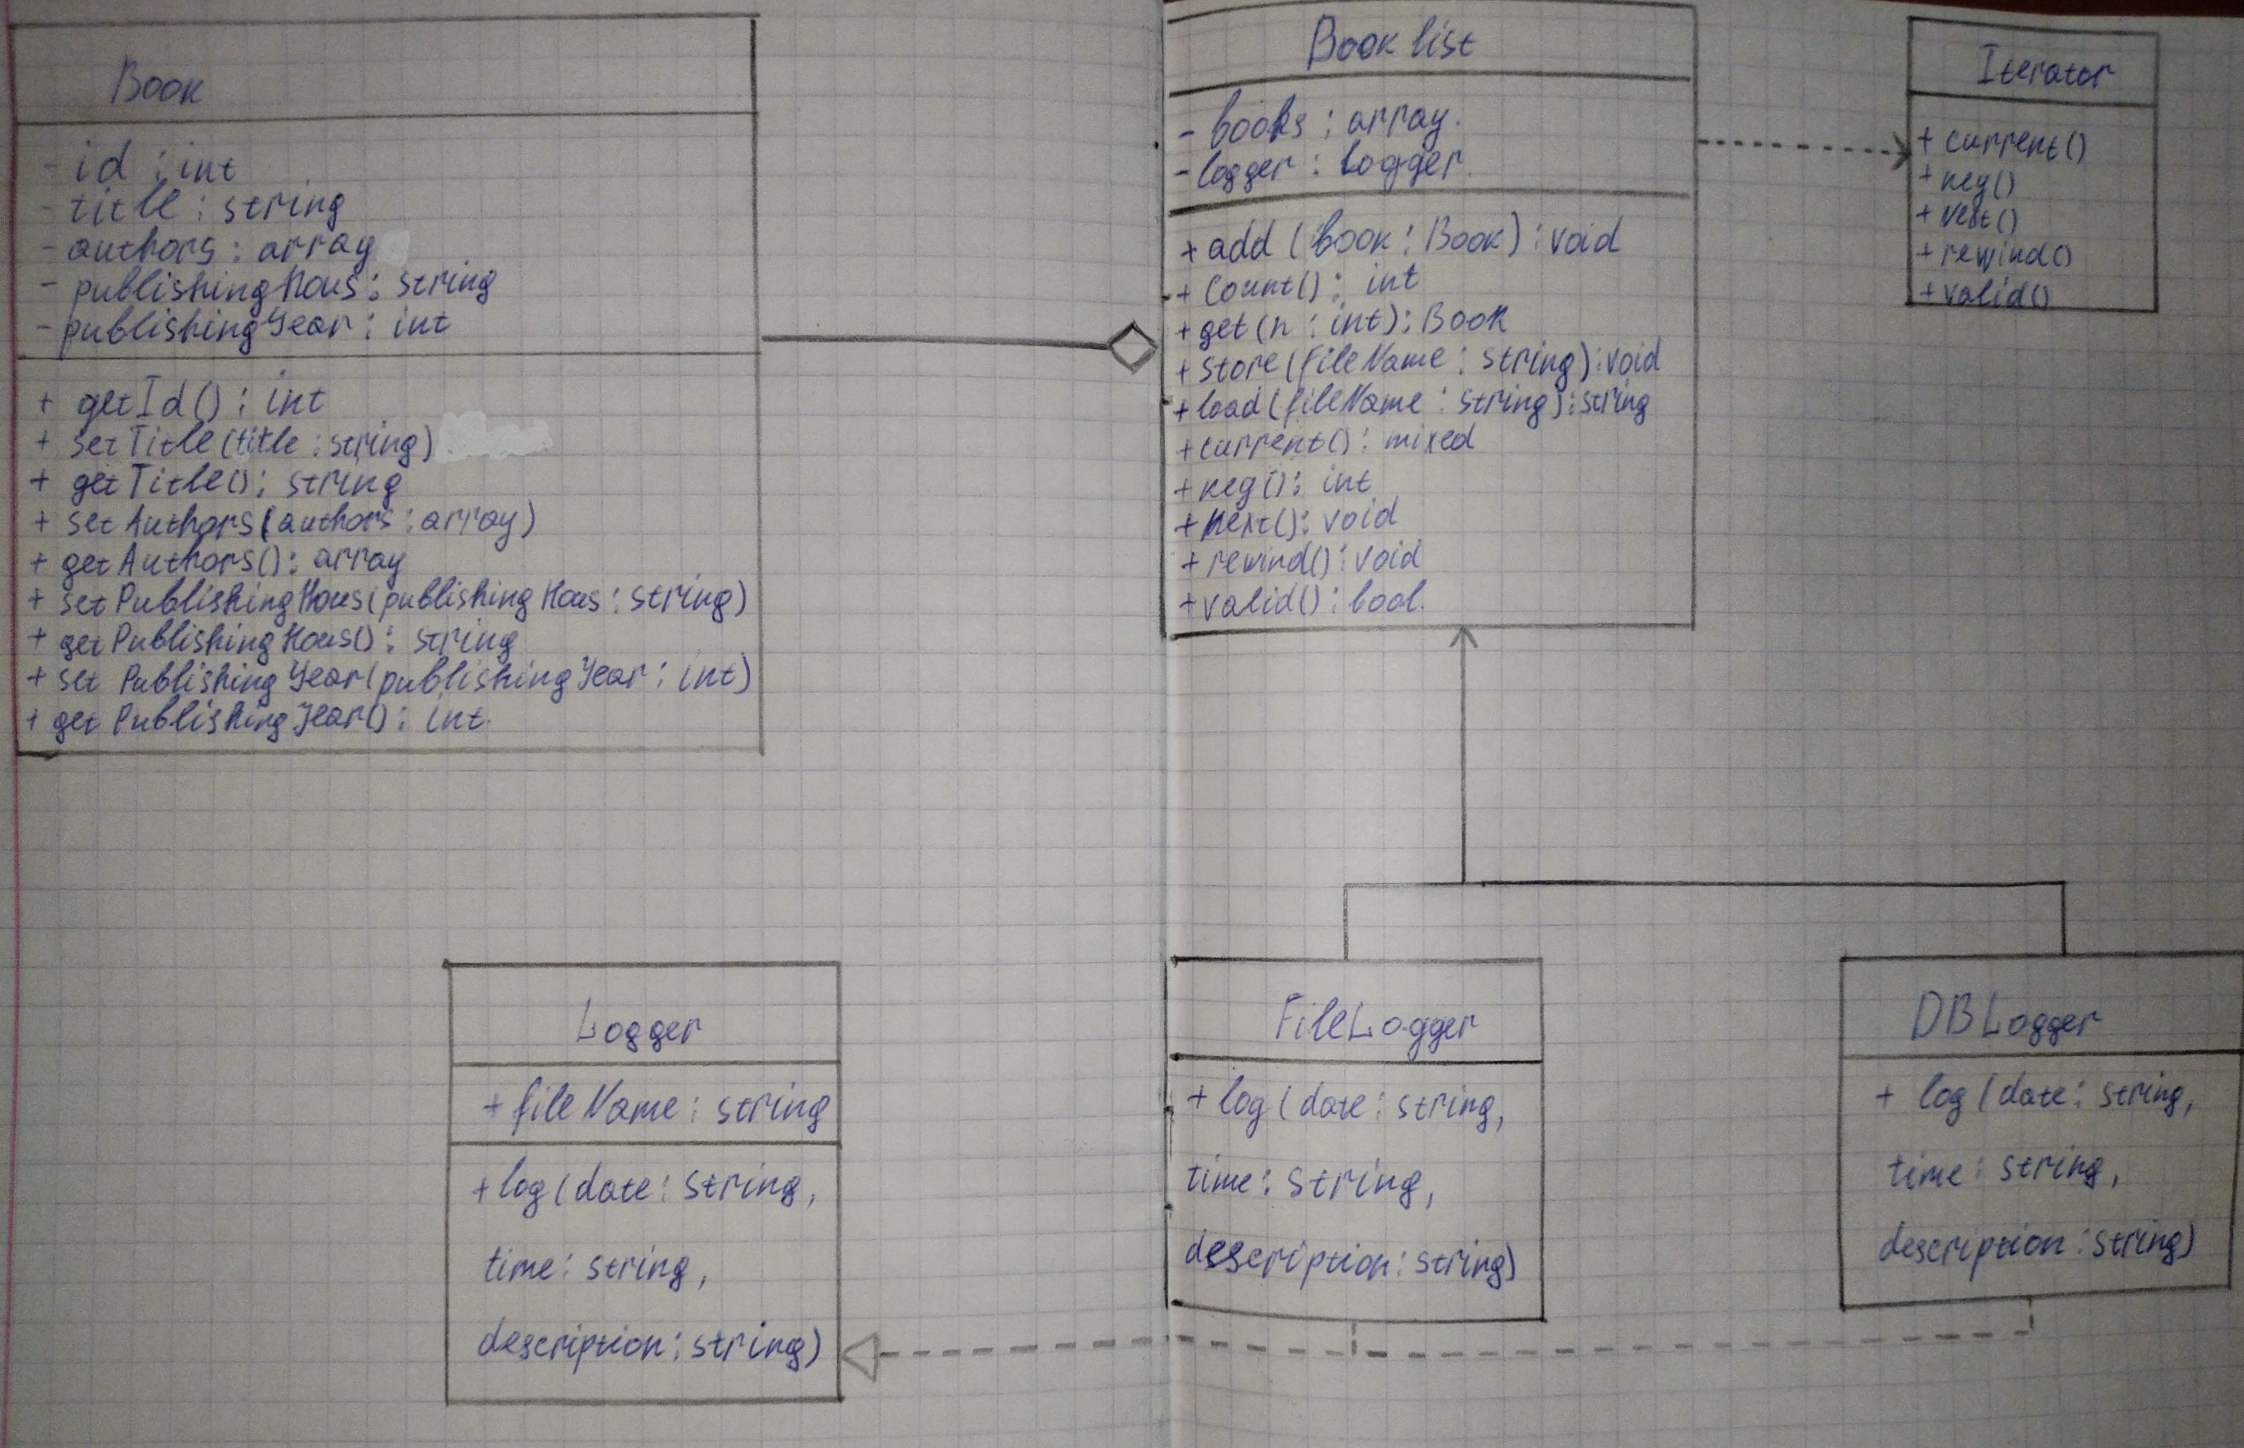 Book
- id : int
- title : string
- authors : array
- publishingHous : string
- publishingYear : int
+ getId() : int
+ setTitle(title : string)
+ getTitle() : string
+ setAuthors(authors : array)
+ getAuthors() : array
+ setPublishingHous(publishingHous : string)
+ getPublishingHous() : string
+ set PublishingYear(publishingYear : int)
+ get PublishingYear() : int
Book list
- books : array.
- logger : Logger.
+ add (book : Book) : void
+ count() : int
+ get(n : int) : Book
+ store(fileName : string) : void
+ load(fileName : string) : string
+ current() : mixed
+ key() : int
+ next() : void
+ rewind() : void
+ valid() : bool.
Iterator
+ current()
+ key()
+ next()
+ rewind()
+ valid()
Logger
+ fileName : string
+ log(date : string,
time : string,
description : string)
FileLogger
+ log(date : string,
time : string,
description : string)
DBLogger
+ log(date : string,
time : string,
description : string)